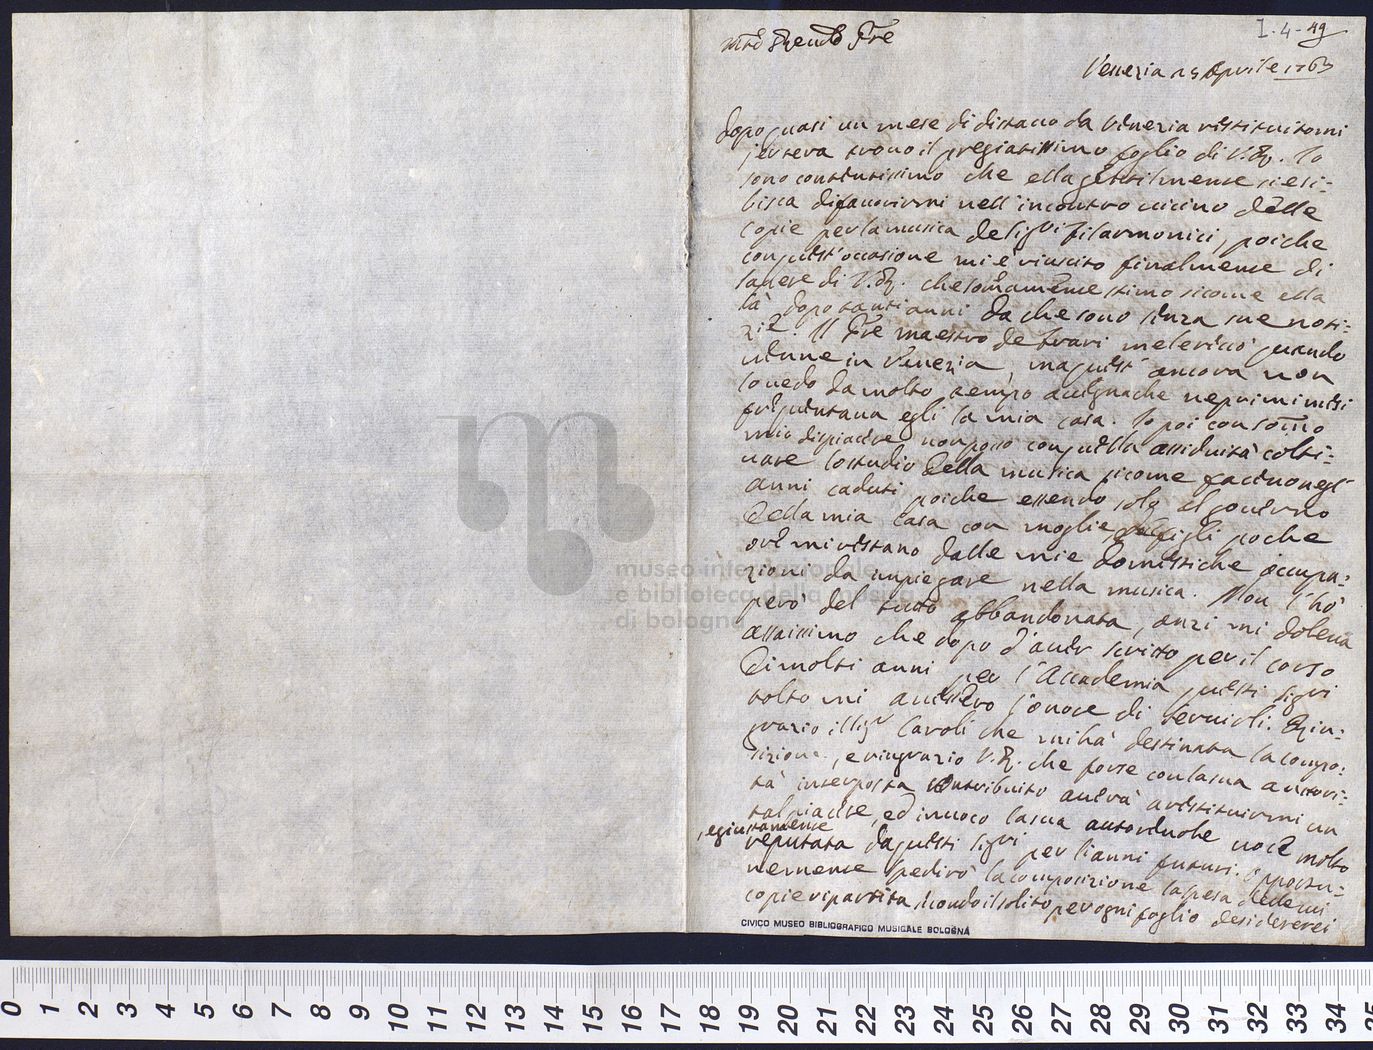 I. 4 - 49
Venezia 15 Aprile 1763
dopo quasi un mese di distacco da Venezia restituitomi
jersera trovo il pregiatissimo foglio di V. R. Io
sono contentissimo che ella gentilmente si esi-
bisca di favorirmi nell'incontro vicino delle
copie per la musica de Sigri filarmonici, poiche
con quest'occasione mi è riuscito finalmente di
sapere di V. R. che somamente stimo sicome ella
sà dopo tanti anni da che sono senza sue noti-
zie. Il Pre maestro de frari me le reccò quando
venne in Venezia, ma quest'ancora non
lo vedo da molto tempo
frequentava egli la mia casa. Io poi con somo
mio dispiacere non posso con quella assiduità colti-
vare lo studio della musica sicome facevo negl'
anni caduti poiche essendo solo al governo
della mia casa con moglie figli poche
ore mi restano dalle mie domestiche occupa-
zioni da impiegare nella musica. Non l'hò
però del tutto abbandonata, anzi mi doleva
assaissimo che dopo d'aver scritto per il corso
di molti anni per l'Accademia questi Sigri
tolto mi avessero l'onore di servirli. Rin-
grazio il Sigr Caroli che mi hà destinata la compo-
sizione, e ringrazio V. R. che forse con la sua autori-
tà interposta contribuito averà a restituirmi un
tal piacere, ed invoco la sua autorevole voce molto
, e giustamente
reputata da questi Sigri per li anni futuri. Opportu-
nemente spedirò la composizione la spesa delle
copie ripartita secondo il solito per ogni foglio desidererei
CIVICO MUSEO BIBLIOGRAFICO MUSICALE BOLOGNA
museo internazionale
e biblioteca della musica
di bologna
0 1 2 3 4 5 6 7 8 9 10 11 12 13 14 15 16 17 18 19 20 21 22 23 24 25 26 27 28 29 30 31 32 33 34 35